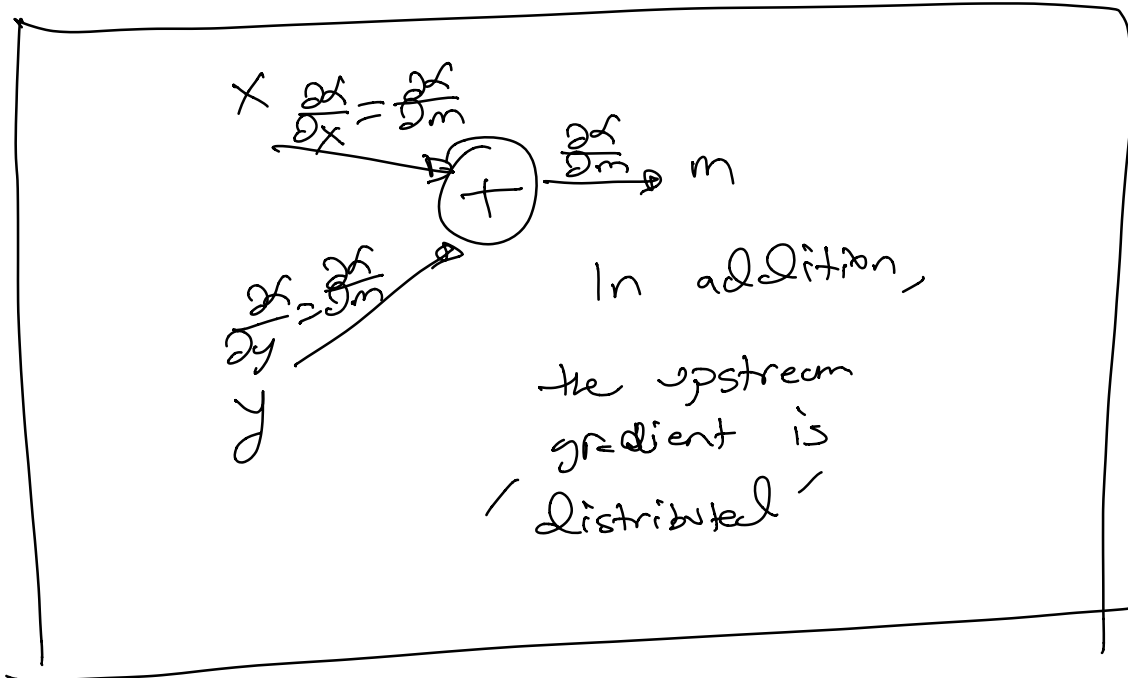 x ∂ℒ/∂x = ∂ℒ/∂m
∂ℒ/∂m
m
+
∂ℒ/∂y = ∂ℒ/∂m
y
In addition,
the upstream
gradient is
'distributed'